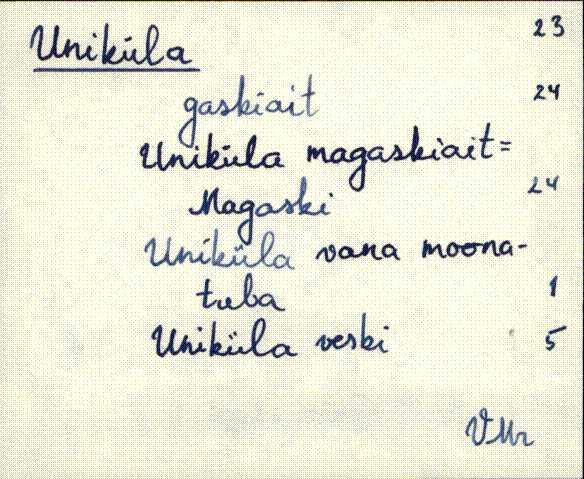 Uniküla 23
gaskiait 24
Uniküla magaskiait=
Magaski 24
Uniküla vana moona-
tuba 1
Uniküla veski 5
VMr